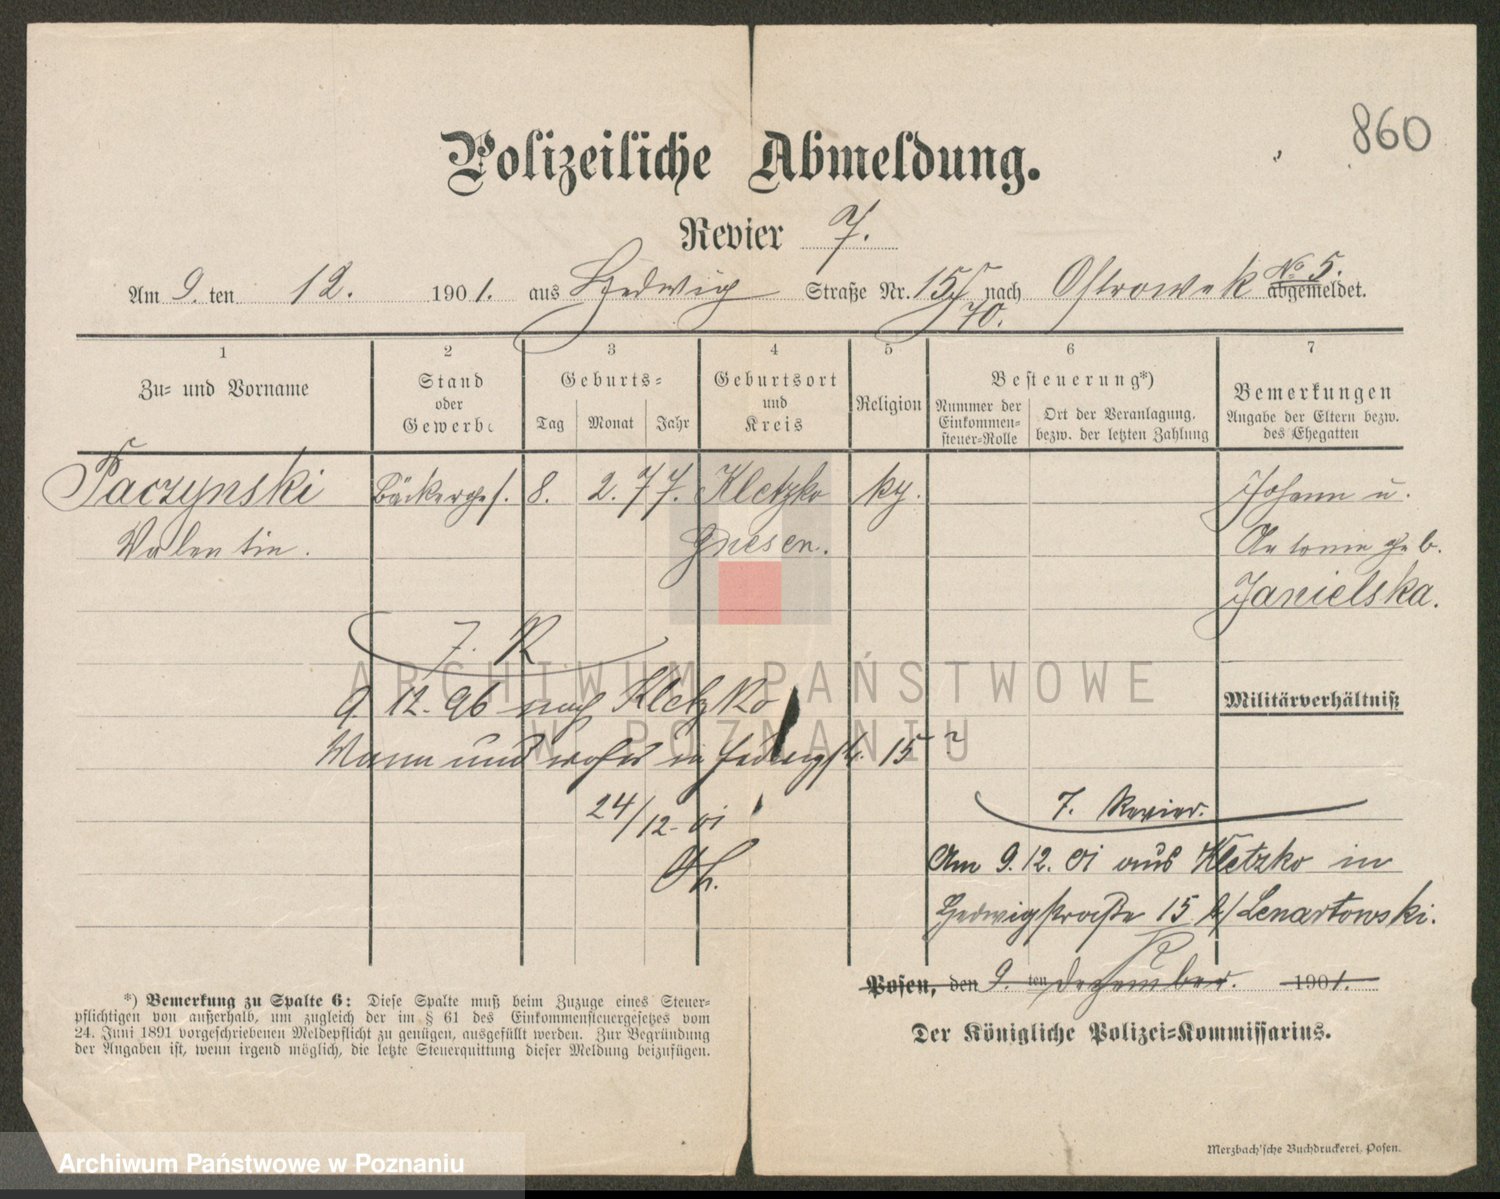 860
Polizeiliche Abmeldung.
Revier 7.
Am 9. ten 12. 1901. aus Hedwig Straße Nr. 15 nach Ostrowek No 5. abgemeldet.
70.
1 2 3 4 5 6 7
Zu- und Vorname
Stand oder Gewerbe
Geburts-
Tag Monat Jahr
Geburtsort und Kreis
Religion
Besteuerung*)
Nummer der Einkommen-steuer-Rolle
Ort der Veranlagung. bezw. der letzten Zahlung
Bemerkungen
Angabe der Eltern bezw. des Ehegatten
Paczynski Bäckerges. 8. 2. 77. Kletzko kg. Johann u.
Valentin. Gnesen. Antonie geb.
Janielska.
7. R
9. 12. 96 nach Kletzko
Militärverhältniß
Wann und woher in Hedwigstr. 15?
24/12. 01
7. Revier.
Am 9. 12. 01 aus Kletzko in
Hedwigstraße 15 b/ Lenartowski.
Posen, den 9. ten Dezember. 1901.
Der Königliche Polizei-Kommissarius.
*) Bemerkung zu Spalte 6: Diese Spalte muß beim Zuzuge eines Steuer-
pflichtigen von außerhalb, um zugleich der im § 61 des Einkommensteuergesetzes vom
24. Juni 1891 vorgeschriebenen Meldepflicht zu genügen, ausgefüllt werden. Zur Begründung
der Angaben ist, wenn irgend möglich, die letzte Steuerquittung dieser Meldung beizufügen.
Merzbach'sche Buchdruckerei, Posen.
ARCHIWUM PAŃSTWOWE
W POZNANIU
Archiwum Państwowe w Poznaniu